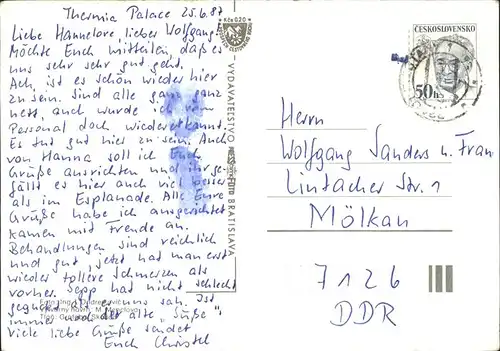 Thermia Palace 25.6.87
Liebe Hannelore, lieber Wolfgang!
Möchte Euch mitteilen, daß es
uns sehr sehr gut geht.
Ach, ist es schön wieder hier
zu sein. Sind alle ganz ganz
nett, auch wurde ich vom
Personal doch wiedererkannt.
Es tut gut hier zu sein. Auch
von Hanna soll ich Euch
Grüße ausrichten und ihr ge-
fällt es hier auch viel besser
als im Esplanade. Alle Eure
Grüße habe ich ausgerichtet
kamen mit Freude an.
Behandlungen sind reichlich
und gut, jetzt hat man erst
wieder tollere Schmerzen als
vorher. Sepp hat nicht schlecht
geguckt als er uns sah. Ist
immer noch der alte "Süße"
viele liebe Grüße sendet
Euch Christel
VYDAVATEĽSTVO
BRATISLAVA
Kčs 0,20
ČESKOSLOVENSKO
50 h
Herrn
Wolfgang Sanders u. Frau
Lintacher Str. 1
Mölkau
7126
DDR